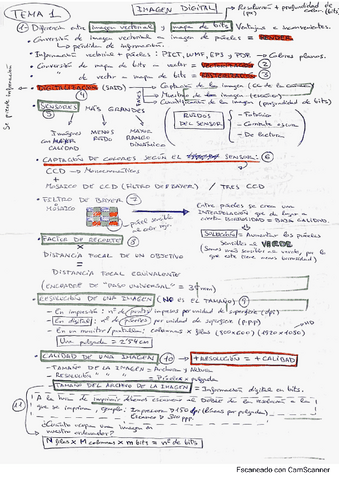 TEMA 1
IMAGEN DIGITAL
Resolución + profundidad de color (bits)
(px)
1) Diferencia entre imagen vectorial y mapa de bits
Ventajas e inconvenientes
• Conversión de imagen vectorial → imagen de píxeles = RENDER
↳ pérdida de información.
• Información vectorial + píxeles: PICT, WMF, EPS y PDF → Colores planos.
• Conversión de mapa de bits → vector = 2
de vector → mapa de bits = 3
Se pierde información
DIGITALIZACIÓN (SAID)
4
Captación de la imagen
Muestreo de la imagen
Cuantificación de la imagen (profundidad de bits)
• SENSORES
5
MÁS GRANDES
Imágenes con MAYOR CALIDAD
MENOS RUIDO
MAYOR RANGO DINÁMICO
RUIDOS DEL SENSOR
- Fotónico
- Corriente oscura
- De lectura
• CAPTACIÓN DE COLORES SEGÚN EL SENSOR: 6
CCD → Monocromáticos
+
MOSAICO DE CCD (FILTRO DE BAYER) / TRES CCD
• FILTRO DE BAYER 7
MOSAICO
Entre píxeles se crea una INTERPOLACIÓN que da lugar a una LUMINOSIDAD = BAJA CALIDAD.
SOLUCIÓN = Aumentar los píxeles sensibles al VERDE
(Somos más sensibles al verde, por lo que este tiene más luminosidad)
• FACTOR DE RECORTE 8
×
DISTANCIA FOCAL DE UN OBJETIVO
=
DISTANCIA FOCAL EQUIVALENTE
(ENCUADRE DE "PASO UNIVERSAL" = 35mm)
RESOLUCIÓN DE UNA IMAGEN (NO ES EL TAMAÑO) 9
- En impresión: nº de puntos impresos por unidad de superficie (dpi)
- En digital: nº de píxeles por unidad de superficie (ppp)
- En un monitor/pantalla: columnas x filas (800x600) (1920x1080)
HD
Una pulgada = 2'54cm
• CALIDAD DE UNA IMAGEN 10
+RESOLUCIÓN = +CALIDAD
- TAMAÑO DE LA IMAGEN = Anchura y Altura
- RESOLUCIÓN " " " = Píxeles x pulgada
- TAMAÑO DEL ARCHIVO DE LA IMAGEN = Información digital en bits.
11
A la hora de imprimir debemos escanear al doble de la resolución a la que se imprime, ejemplo: Impresora → 150 lpi (líneas por pulgada)
Escáner → 300 ppp
¿Cuánto ocupa una imagen en nuestro ordenador?
N filas x M columnas x m bits = nº de bits
Escaneado con CamScanner